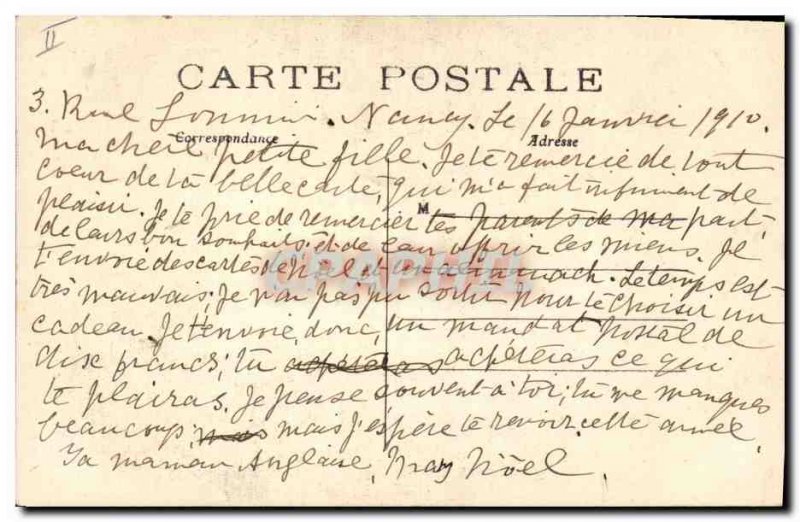 II
CARTE POSTALE
3. Rue . Nancy. Le 16 Janvier 1910.
Correspondance Adresse
Ma chère petite fille. Je te remercie de tout
coeur de ta belle carte, qui m'a fait infiniment de
M
plaisir. Je te prie de remercier tes parents de ma part,
de leurs bon souhaits et de leur offrir les miens. Je
t'envoie des cartes de Noël et un almanach. Le temps est
très mauvais; je n'ai pas pu sortir pour te choisir un
cadeau. Je t'envoie, donc, un mandat postal de
dix francs; tu achèteras ce qui
te plairas. Je pense souvent à toi; tu me manques
beaucoup; mais j'espère te revoir cette année.
Ta maman Anglaise, Noël.